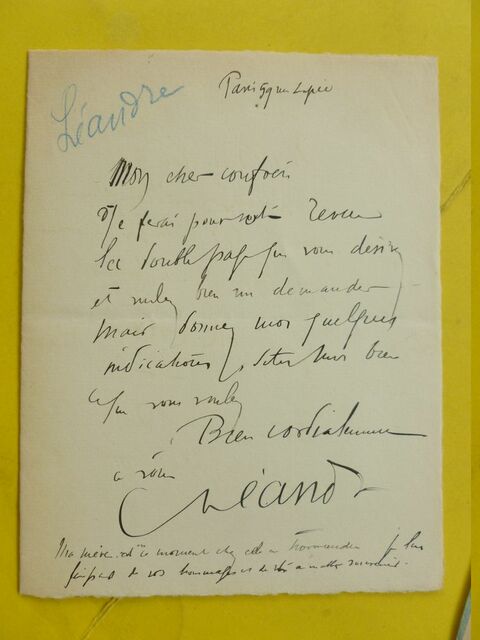 Léandre
Paris 59 rue Lepic
Mon cher confrère
Je ferai pour votre Revue
la double page que vous désirez
et voulez bien me demander
mais donnez moi quelques
indications, dites moi bien
ce que vous voulez
Bien cordialement
à vous
CLéandre
Ma mère est en ce moment chez elle en Normandie je lui
fais part de vos hommages et de